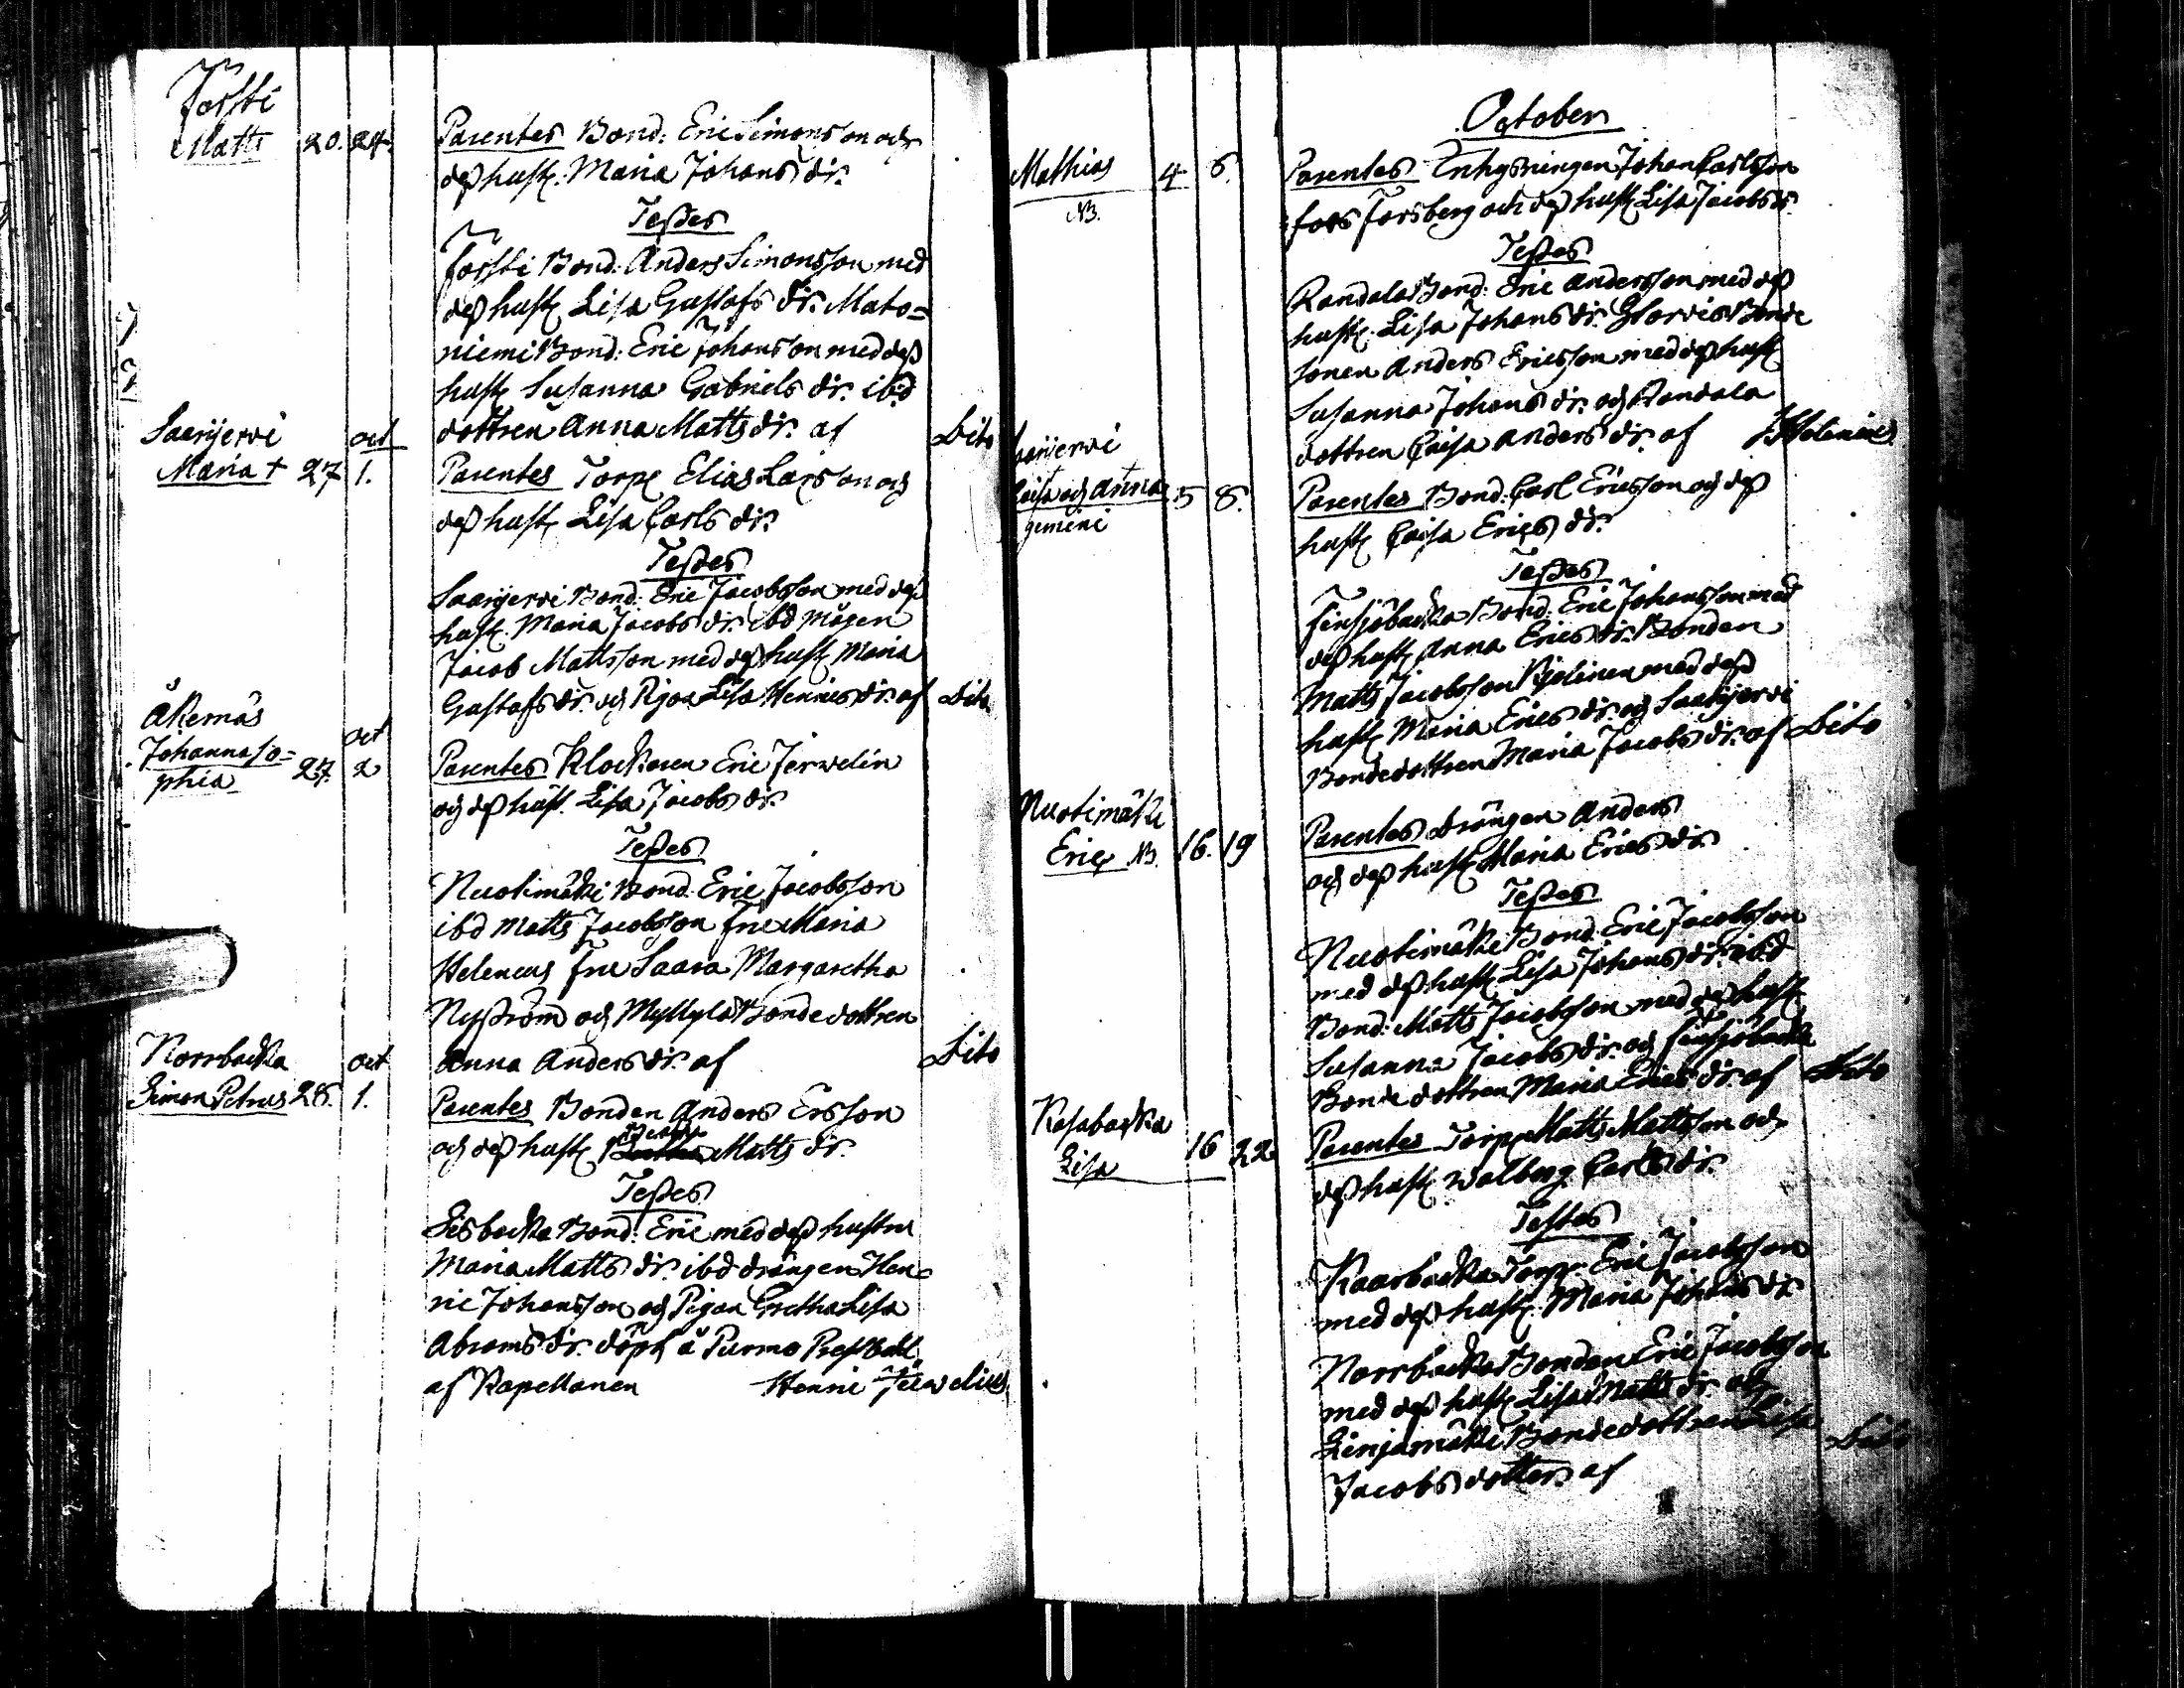 Forssti
Matts 20. 24. Parentes Bond: Eric Simonsson och
dess hust. Maria Johans dr.
Testes
Forssti Bond: Anders Simonsson med
dess hust Lisa Gustafs dr. Mato=
niemi Bond: Eric Johansson med dess
hust Susanna Gabriels dr. ibid
dottren Anna Matts dr. af Dito
Saarijervi oct
Maria † 27 1. Parentes Torp Elias Larsson och
dess hust Lisa Carls dr.
Testes
Saarijervi Bond: Eric Jacobsson med dess
hust. Maria Jacobs dr. ibd mågen
Jacob Mattsson med dess hust Maria
Gustafs dr. och Pigan Lisa Henrics dr. af Dito
Åkernäs oct
Johanna So=
phia 27. 2 Parentes Klockaren Eric Ferwelin
och dess hust. Lisa Jacobs dr.
Testes
Nuotimäki Bond: Eric Jacobsson
ibd Matts Jacobsson Fru Maria
Heleneus Fru Saara Margaretha
Nyström och Myllylä Bonde dottren
Anna Anders dr. af Dito
Norrbacka oct
Simon Petrus 28. 1. Parentes Bonden Anders Ersson
och dess hust Matts dr.
Testes
Lisbacka Bond: Eric med dess hustru
Maria Matts dr. ibd drängen Hen=
ric Johansson och Pigan Gretha Lisa
Abrams dr. döpt å Purmo Prestboll
af Kapellanen Henric Ferwelius
October
Mathias 4 6. Parentes Inhysningen Johan Carlsson
NB. Forsberg och dess hust Lisa Jacobs dr.
Testes
Randala Bond: Eric Andersson med dess
hust. Lisa Johans dr. Bonde
sonen Anders Ericsson med dess hust
Susanna Johans dr. och Randala
dottren Caisa Anders dr. af
Saarijervi
Caisa och Anna 5 8. Parentes Bond: Carl Ericsson och dess
gemini hust Caisa Erics dr.
Testes
Finsjöbacka Bond: Eric Johansson med
dess hust Anna Erics dr. Bonden
Matts Jacobsson med dess
hust Maria Erics dr. och Saarijervi
Bonde dottren Maria Jacobs dr. af Dito
Nuotimäki
Eric NB. 16. 19 Parentes Drängen Anders
och dess hust Maria Erics dr.
Testes
Nuotimäki Bond: Eric Jacobsson
med dess hust Lisa Johans dr. ibid
Bond: Matts Jacobsson med dess hust
Susanna Jacobs dr. och Finsjöbacka
Bonde dottren Maria Erics dr. af Dito
Kasabacka
Lisa 16 22 Parentes Torp Matts Mattsson och
dess hust Walberg Carls dr.
Testes
Kaarbacka Torp: Eric Jacobsson
med dess hust. Maria Johans dr.
Norrbacka Bonden Eric Jacobsson
med dess hust Lisa Matts dr. och
Linjamäki Bonde dottren Lisa Dito
Jacobs dotter af